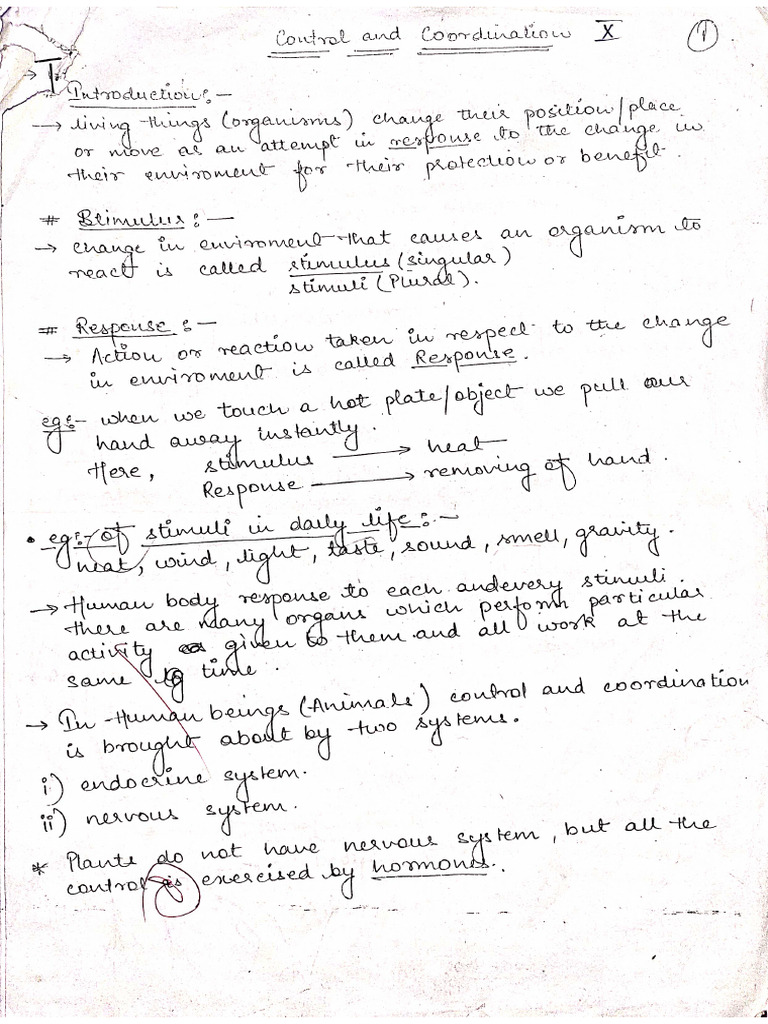 Control and Coordination X 1
Introduction:-
→ living things (organisms) change their position/place
or move as an attempt in response to the change in
their enviroment for their protection or benefit.
# Stimulus:-
→ change in enviroment that causes an organism to
react is called stimulus (singular)
stimuli (Plural).
# Response:-
→ Action or reaction taken in respect to the change
in enviroment is called Response.
eg:- when we touch a hot plate/object we pull our
hand away instantly.
Here, stimulus → heat
Response → removing of hand.
• eg:- of stimuli in daily life:-
heat, wind, light, taste, sound, smell, gravity.
→ Human body response to each and every stimuli.
there are many organs which perform particular
activity given to them and all work at the
same time.
→ In Human beings (Animals) control and coordination
is brought about by two systems.
i) endocrine system.
ii) nervous system.
* Plants do not have nervous system, but all the
control is exercised by hormones.